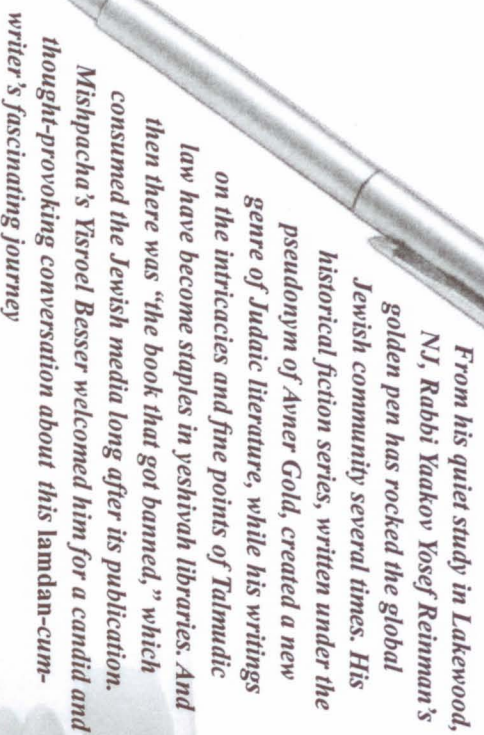 From his quiet study in Lakewood,
NJ, Rabbi Yaakov Yosef Reinman's
golden pen has rocked the global
Jewish community several times. His
historical fiction series, written under the
pseudonym of Avner Gold, created a new
genre of Judaic literature, while his writings
on the intricacies and fine points of Talmudic
law have become staples in yeshivah libraries. And
then there was "the book that got banned," which
consumed the Jewish media long after its publication.
Mishpacha's Yisroel Besser welcomed him for a candid and
thought-provoking conversation about this lamdan-cum-
writer's fascinating journey